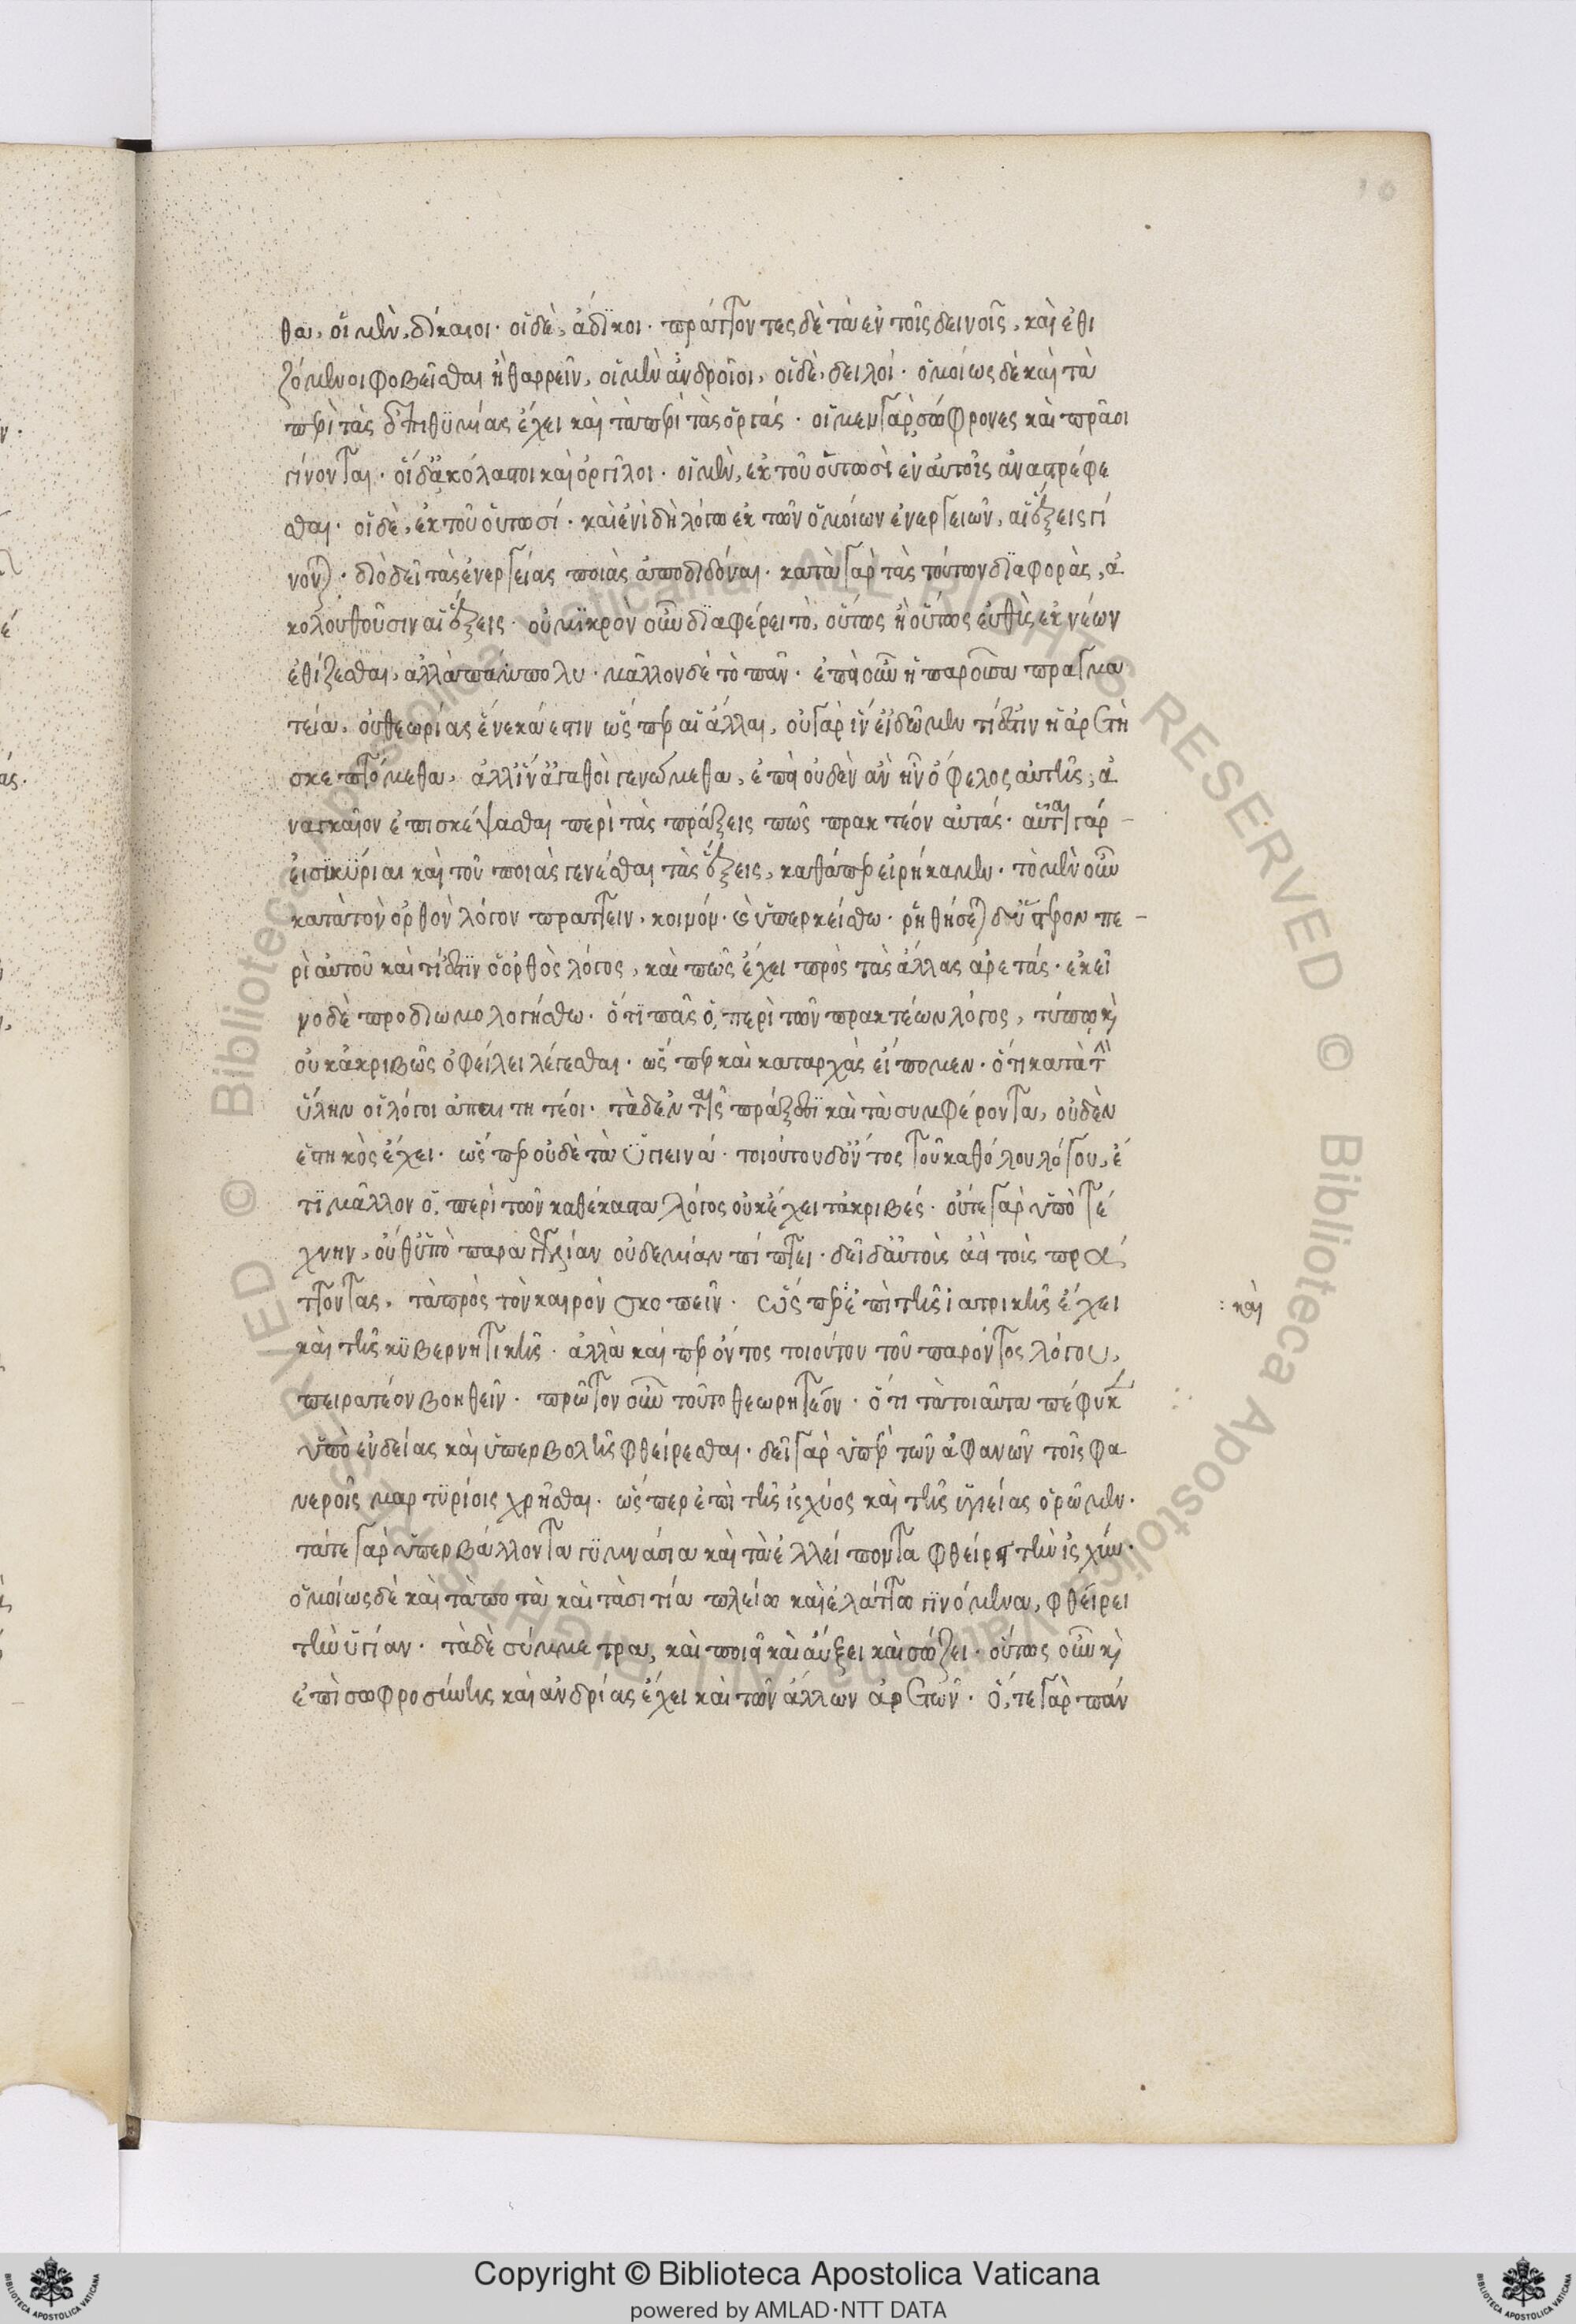 10
θα, οἱ μὲν, δίκαιοι· οἱ δὲ, ἄδικοι· πράττοντες δὲ τὰ ἐν τοῖς δεινοῖς, καὶ ἐθι
ζόμενοι φοβεῖσθαι ἢ θαρρεῖν, οἱ μὲν ἀνδρεῖοι, οἱ δὲ, δειλοί· ὁμοίως δὲ καὶ τὰ
περὶ τὰς ἐπιθυμίας ἔχει καὶ τὰ περὶ τὰς ὀργάς· οἱ μεν γὰρ σώφρονες καὶ πρᾶοι
γίνονται· οἱ δ' ἀκόλαστοι καὶ ὀργίλοι· οἱ μὲν, ἐκ τοῦ οὑτωσὶ ἐν αὐτοῖς ἀναστρέφε
σθαι· οἱ δὲ, ἐκ τοῦ οὑτωσί· καὶ ἑνὶ δὴ λόγω ἐκ τῶν ὁμοίων ἐνεργειῶν, αἱ ἕξεις γί
νονται· διὸ δεῖ τὰς ἐνεργείας ποιὰς ἀποδιδόναι· κατὰ γὰρ τὰς τούτων διαφορὰς, ἀ
κολουθοῦσιν αἱ ἕξεις· οὐ μικρὸν οὖν διαφέρει τὸ, οὕτως ἢ οὕτως εὐθὺς ἐκ νέων
ἐθίζεσθαι, ἀλλὰ πάμπολυ· μᾶλλον δὲ τὸ πᾶν· ἐπεὶ οὖν ἡ παροῦσα πραγμα
τεία, οὐ θεωρίας ἕνεκά ἐστιν ὥσπερ αἱ ἄλλαι, οὐ γὰρ ἵν' εἰδῶμεν τί ἐστιν ἡ ἀρετὴ
σκεπτόμεθα, ἀλλ' ἵν' ἀγαθοὶ γενώμεθα, ἐπεὶ οὐδὲν ἂν ἦν ὄφελος αὐτῆς, ἀ
ναγκαῖον ἐπισκέψασθαι περὶ τὰς πράξεις πῶς πρακτέον αὐτάς· αὗται γάρ
εἰσι κύριαι καὶ τοῦ ποιὰς γενέσθαι τὰς ἕξεις, καθάπερ εἰρήκαμεν· τὸ μὲν οὖν
κατὰ τὸν ὀρθὸν λόγον πράττειν, κοινόν· καὶ ὑπερκείσθω· ῥηθήσεται δ' ὕστερον πε
ρὶ αὐτοῦ καὶ τί ἐστιν ὁ ὀρθὸς λόγος, καὶ πῶς ἔχει πρὸς τὰς ἄλλας ἀρετάς· ἐκεῖ
νο δὲ προδιωμολογήσθω· ὅτι πᾶς ὁ, περὶ τῶν πρακτέων λόγος, τύπω καὶ
οὐκ ἀκριβῶς ὀφείλει λέγεσθαι· ὥσπερ καὶ καταρχὰς εἴπομεν· ὅτι κατὰ τὴν
ὕλην οἱ λόγοι ἀπαιτητέοι· τὰ δ' ἐν ταῖς πράξεσι καὶ τὰ συμφέροντα, οὐδὲν
ἑστηκὸς ἔχει· ὥσπερ οὐδὲ τὰ ὑγιεινά· τοιούτου δ' ὄντος τοῦ καθόλου λόγου, ἔ
τι μᾶλλον ὁ, περὶ τῶν καθέκαστα λόγος οὐκ ἔχει τἀκριβές· οὔτε γὰρ ὑπὸ τέ
χνην, οὔθ' ὑπὸ παραγγελίαν οὐδεμίαν πίπτει· δεῖ δ' αὐτοὺς ἀεὶ τοὺς πρά
ττοντας, τὰ πρὸς τὸν καιρὸν σκοπεῖν· ὥσπερ ἐπὶ τῆς ἰατρικῆς ἔχει
: καὶ
καὶ τῆς κυβερνητικῆς· ἀλλὰ καίπερ ὄντος τοιούτου τοῦ παρόντος λόγου,
πειρατέον βοηθεῖν· πρῶτον οὖν τοῦτο θεωρητέον· ὅτι τὰ τοιαῦτα πέφυκεν
ὑπὸ ἐνδείας καὶ ὑπερβολῆς φθείρεσθαι· δεῖ γὰρ ὑπὲρ τῶν ἀφανῶν τοῖς φα
νεροῖς μαρτυρίοις χρῆσθαι· ὥσπερ ἐπὶ τῆς ἰσχύος καὶ τῆς ὑγιείας ὁρῶμεν·
τά τε γὰρ ὑπερβάλλοντα γυμνάσια καὶ τὰ ἐλλείποντα φθείρει τὴν ἰσχύν·
ὁμοίως δὲ καὶ τὰ ποτὰ καὶ τὰ σιτία πλείω καὶ ἐλάττω γινόμενα, φθείρει
τὴν ὑγίαν· τὰ δὲ σύμμετρα, καὶ ποιεῖ καὶ αὔξει καὶ σώζει· οὕτως οὖν καὶ
ἐπὶ σωφροσύνης καὶ ἀνδρίας ἔχει καὶ τῶν ἄλλων ἀρετῶν· ὅ, τε γὰρ πάν
Copyright © Biblioteca Apostolica Vaticana
powered by AMLAD·NTT DATA